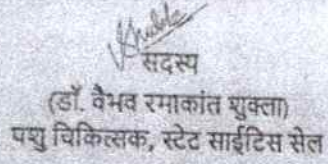 सदस्य
(डॉ. वैभव रमाकांत शुक्ला)
पशु चिकित्सक, स्टेट साईटिस सेल